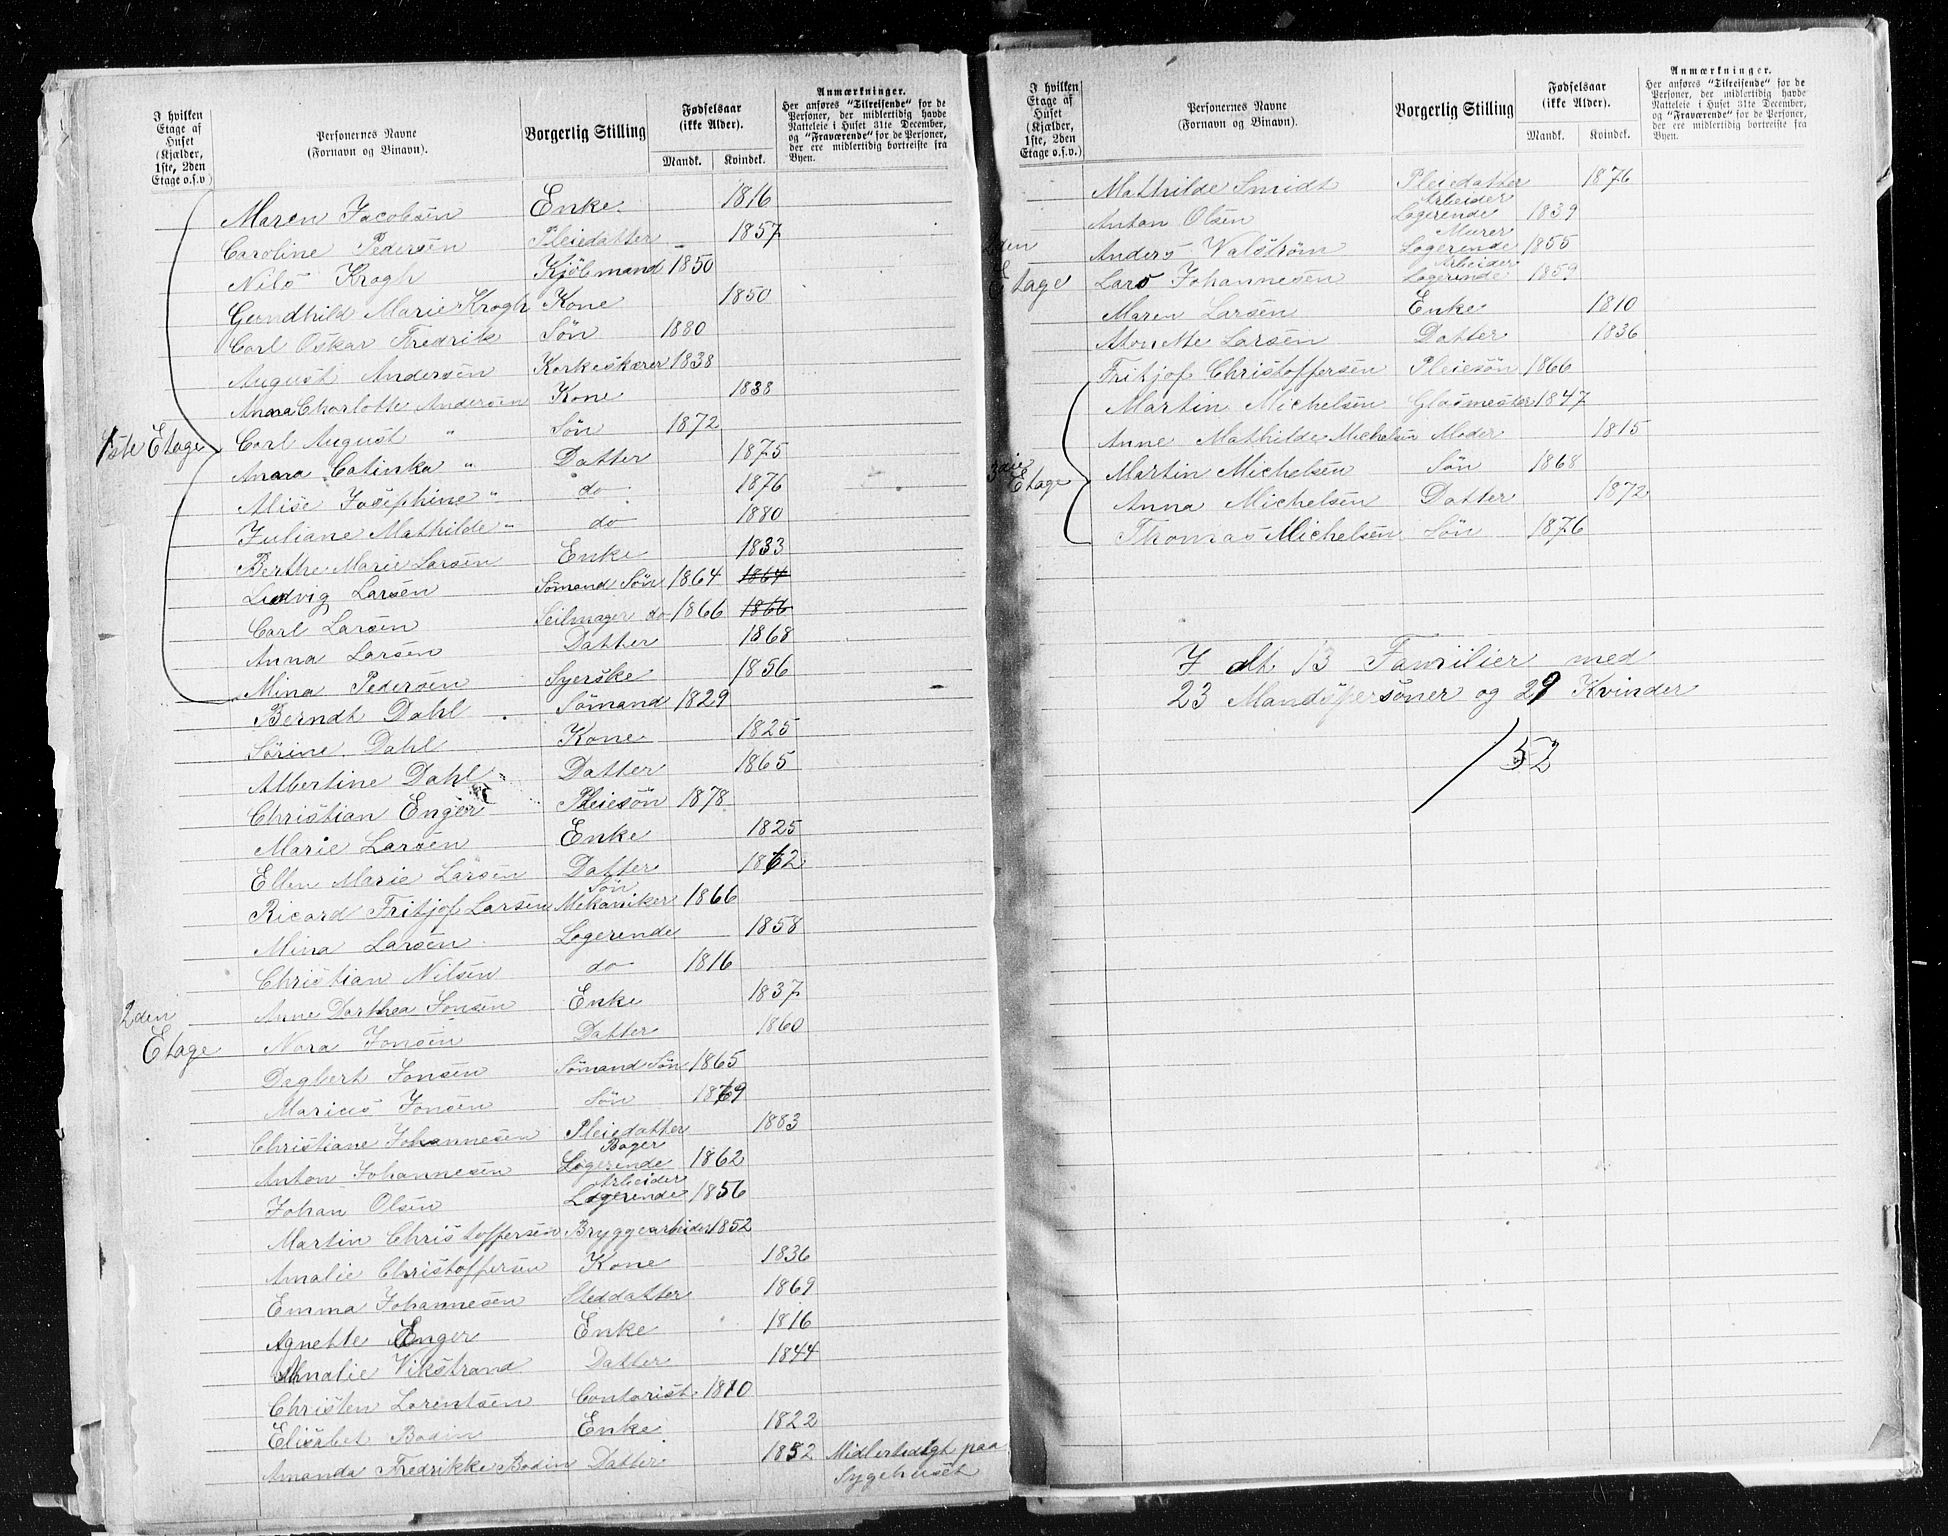 I hvilken Etage af Huset (Kjælder, 1ste, 2den Etage o.s.v)
Personernes Navne (Fornavn og Binavn).
Borgerlig Stilling
Fødselsaar (ikke Alder).
Mandk. Kvindek.
Anmærkninger.
Her anføres "Tilreisende" for de Personer, der midlertidig havde Natteleie i Huset 31te December, og "Fraværende" for de Personer, der ere midlertidig bortreiste fra Byen.
Maren Jacobsen Enke 1816
Caroline Pedersen Pleiedatter 1857
Nils Krogh Kjöbmand 1850
Gundhild Marie Krogh Kone 1850
Carl Oskar Fredrik Sön 1880
August Andersen Korkeskærer 1838
Anna Charlotte Andersen Kone 1838
1ste Etage Carl August " Sön 1872
Anna Catinka " Datter 1875
Alise Josephine " do 1876
Juliane Mathilde " do 1880
Berthe Marie Larsen Enke 1833
Ludvig Larsen Sömand Sön 1864 1864
Carl Larsen Seilmager do 1866 1866
Anna Larsen Datter 1868
Mina Pedersen Syerske 1856
Berndt Dahl Sömand 1829
Sörine Dahl Kone 1825
Albertine Dahl Datter 1865
Christian Enger Pleiesön 1878
Marie Larsen Enke 1825
Ellen Marie Larsen Datter 1862
Ricard Fritjof Larsen Sön Mekaniker 1866
Mina Larsen Logerende 1858
Christian Nilsen do 1816
2den Etage
Anne Dorthea Jonsen Enke 1837
Nora Jonsen Datter 1860
Dagbert Jonsen Sömand Sön 1865
Marius Jonsen Sön 1869
Christiane Johannesen Pleiedatter 1883
Anton Johannesen Bager Logerende 1862
Johan Olsen Arbeider Logerende 1856
Martin Christoffersen Bryggearbeider 1852
Amalie Christoffersen Kone 1836
Emma Johannesen Steddatter 1869
Agnette Enger Enke 1816
Amalie Vikstrand Datter 1844
Christen Lorentsen Contorist 1810
Elisabet Bodin Enke 1822
Amanda Fredrikke Bodin Datter 1852 Midlertidigt paa Sygehuset
I hvilken Etage af Huset (Kjælder, 1ste, 2den Etage o.s.v.)
Personernes Navne (Fornavn og Binavn).
Borgerlig Stilling
Fødselsaar (ikke Alder).
Mandk. Kvindek.
Anmærkninger.
Her anføres "Tilreisende" for de Personer, der midlertidig havde Natteleie i Huset 31te December, og "Fraværende" for de Personer, der ere midlertidig bortreiste fra Byen.
Mathilde Smidt Pleiedatter 1876
Anton Olsen Arbeider Logerende 1839
2den Etage
Anders Valström Murer Logerende 1855
Lars Johannesen Arbeider Logerende 1859
Maren Larsen Enke 1810
Monette Larsen Datter 1836
Fritjof Christoffersen Pleiesön 1866
Martin Michelsen Glasmester 1847
Anne Mathilde Michelsen Moder 1815
3die Etage
Martin Michelsen Sön 1868
Anna Michelsen Datter 1872
Thomas Michelsen Sön 1876
I alt 13 Familier med
23 Mandspersoner og 29 Kvinder
/ 52